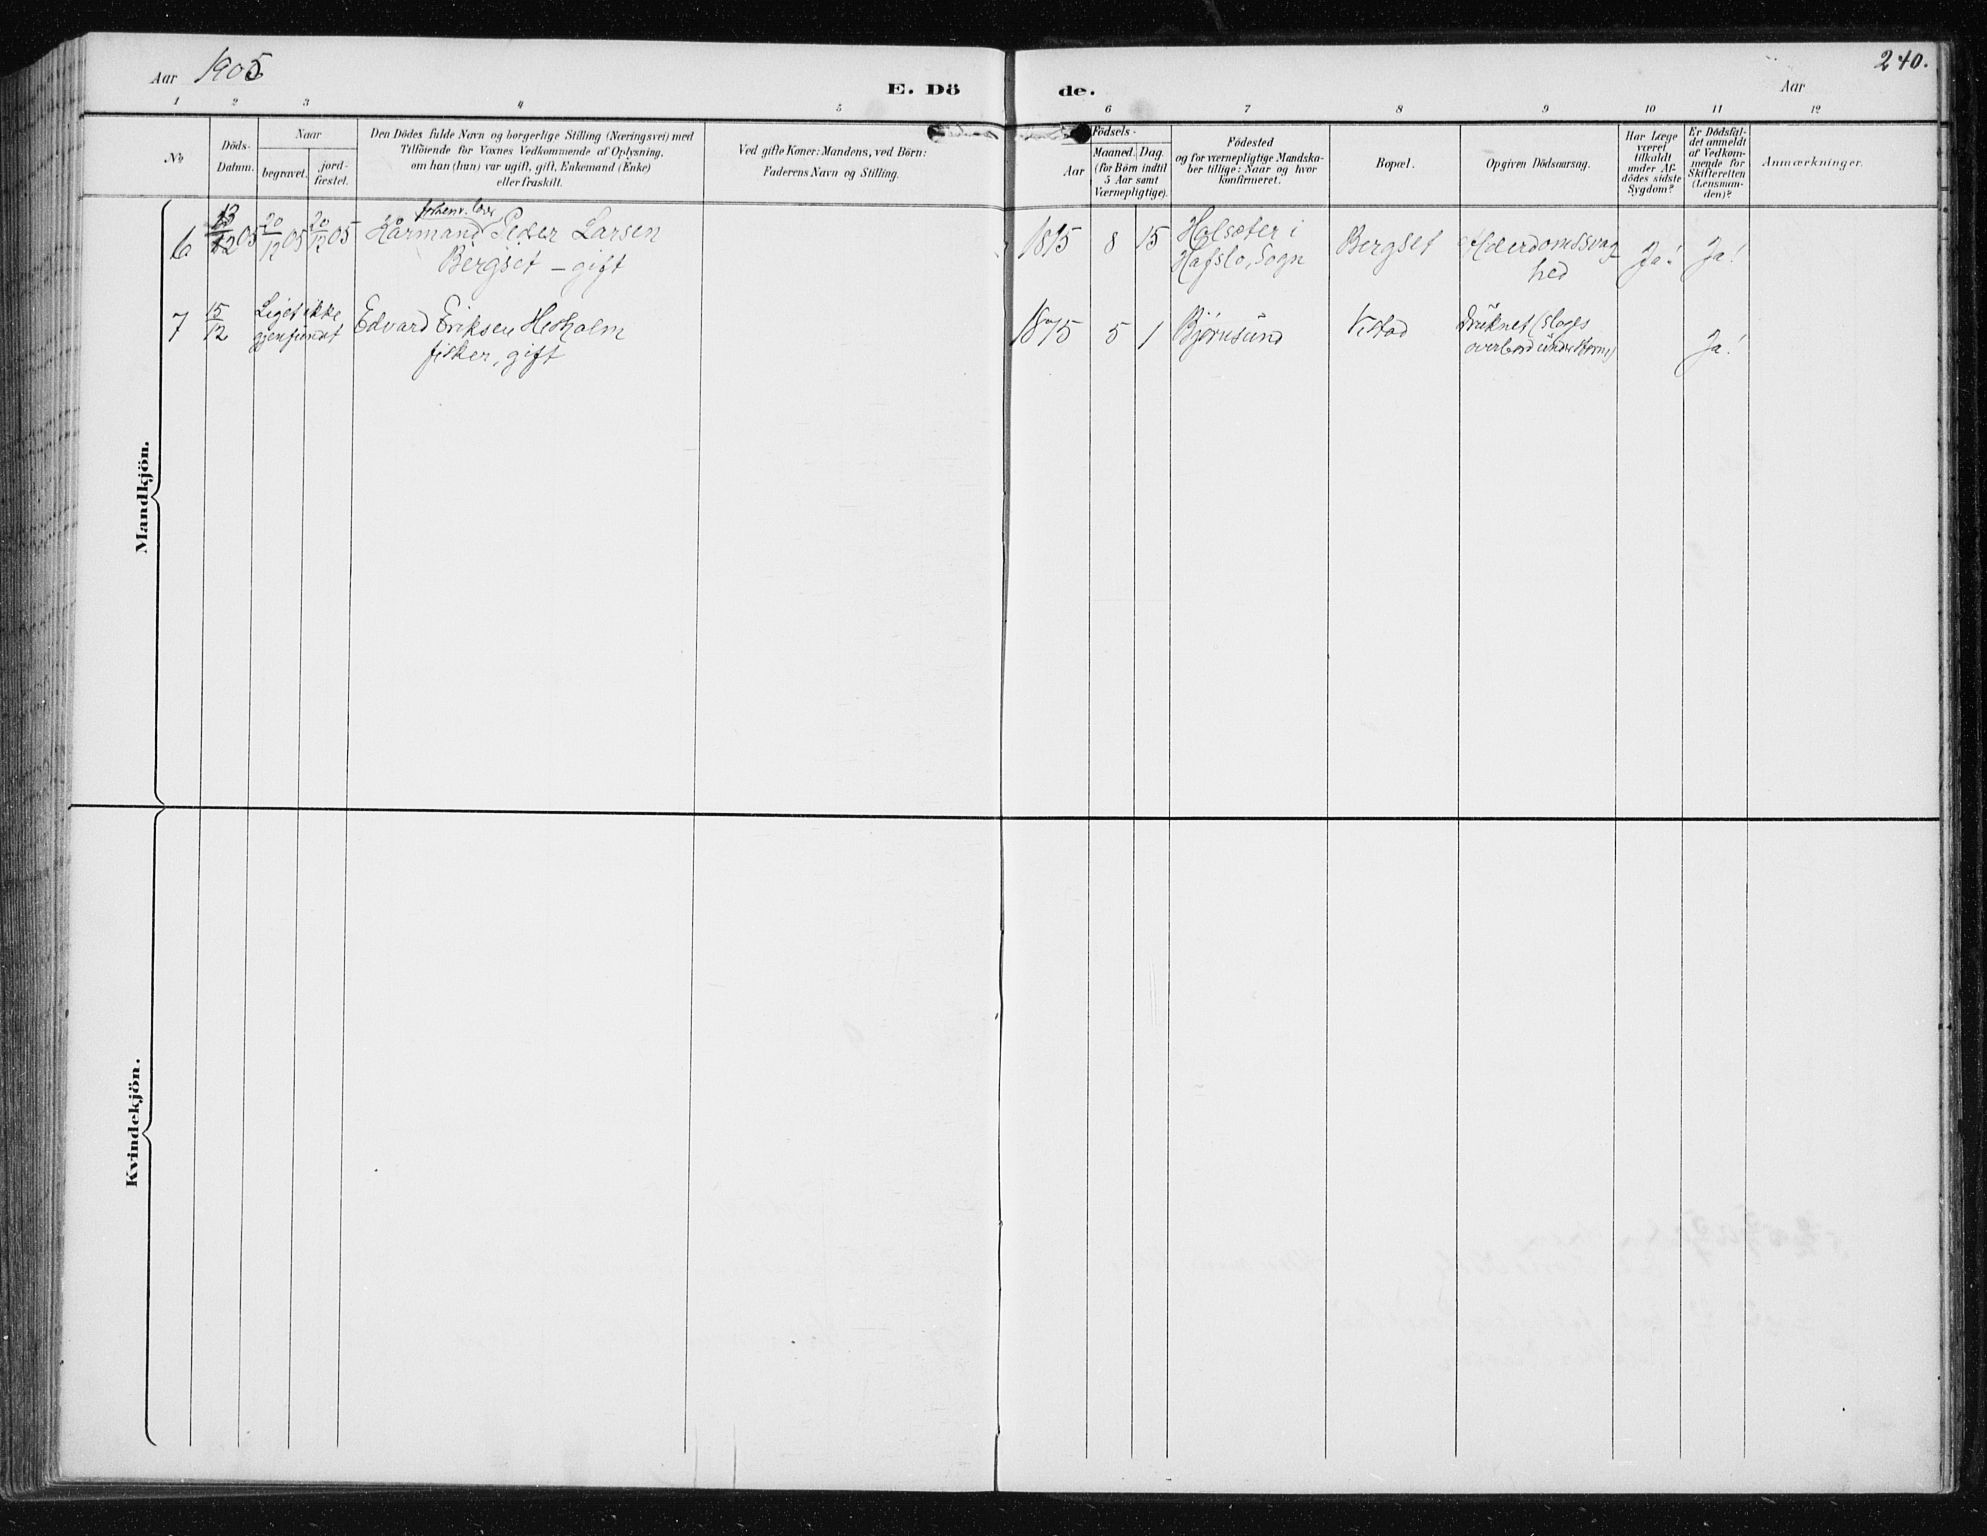 Aar 1905
240.
E. Dö de.
Aar
1 2 3 4 5 6 7 8 9 10 11 12
No
Döds-
Datum.
Naar
begravet.
jord-
fæstet.
Den Dödes fulde Navn og borgerlige Stilling (Næringsvei) med
Tilföiende for Voxnes Vedkommende af Oplysning,
om han (hun) var ugift, gift, Enkemand (Enke)
eller fraskilt.
Ved gifte Koner: Mandens, ved Börn:
Faderens Navn og Stilling.
Födsels-
Aar
Maaned.
Dag.
(for Børn indtil
5 Aar samt
Værnepligtige).
Födested
og for værnepligtige Mandska-
ber tillige: Naar og hvor
konfirmeret.
Bopæl.
Opgiven Dödsaarsag.
Har Læge
været
tilkaldt
under Af-
dödes sidste
Sygdom?
Er Dödsfal-
det anmeldt
af Vedkom-
mende for
Skifteretten
(Lensman-
den)?
Anmærkninger.
Mandkjön.
6 13/12 05 20/12 05 20/12 05 Kårmand Peder Larsen
Bergset – gift
1815 8 15 Holsæter i
Hafslo, Sogn
Bergset
Alderdomssvag-
hed
Ja! Ja!
7 15/12 Liget ikke
gjenfundet
Edvard Eriksen Hestholm
fisker, gift
1875 5 1 Bjørnsund
Vestad
Druknet (sloges
overbord under storm)
Ja!
Kvindekjön.